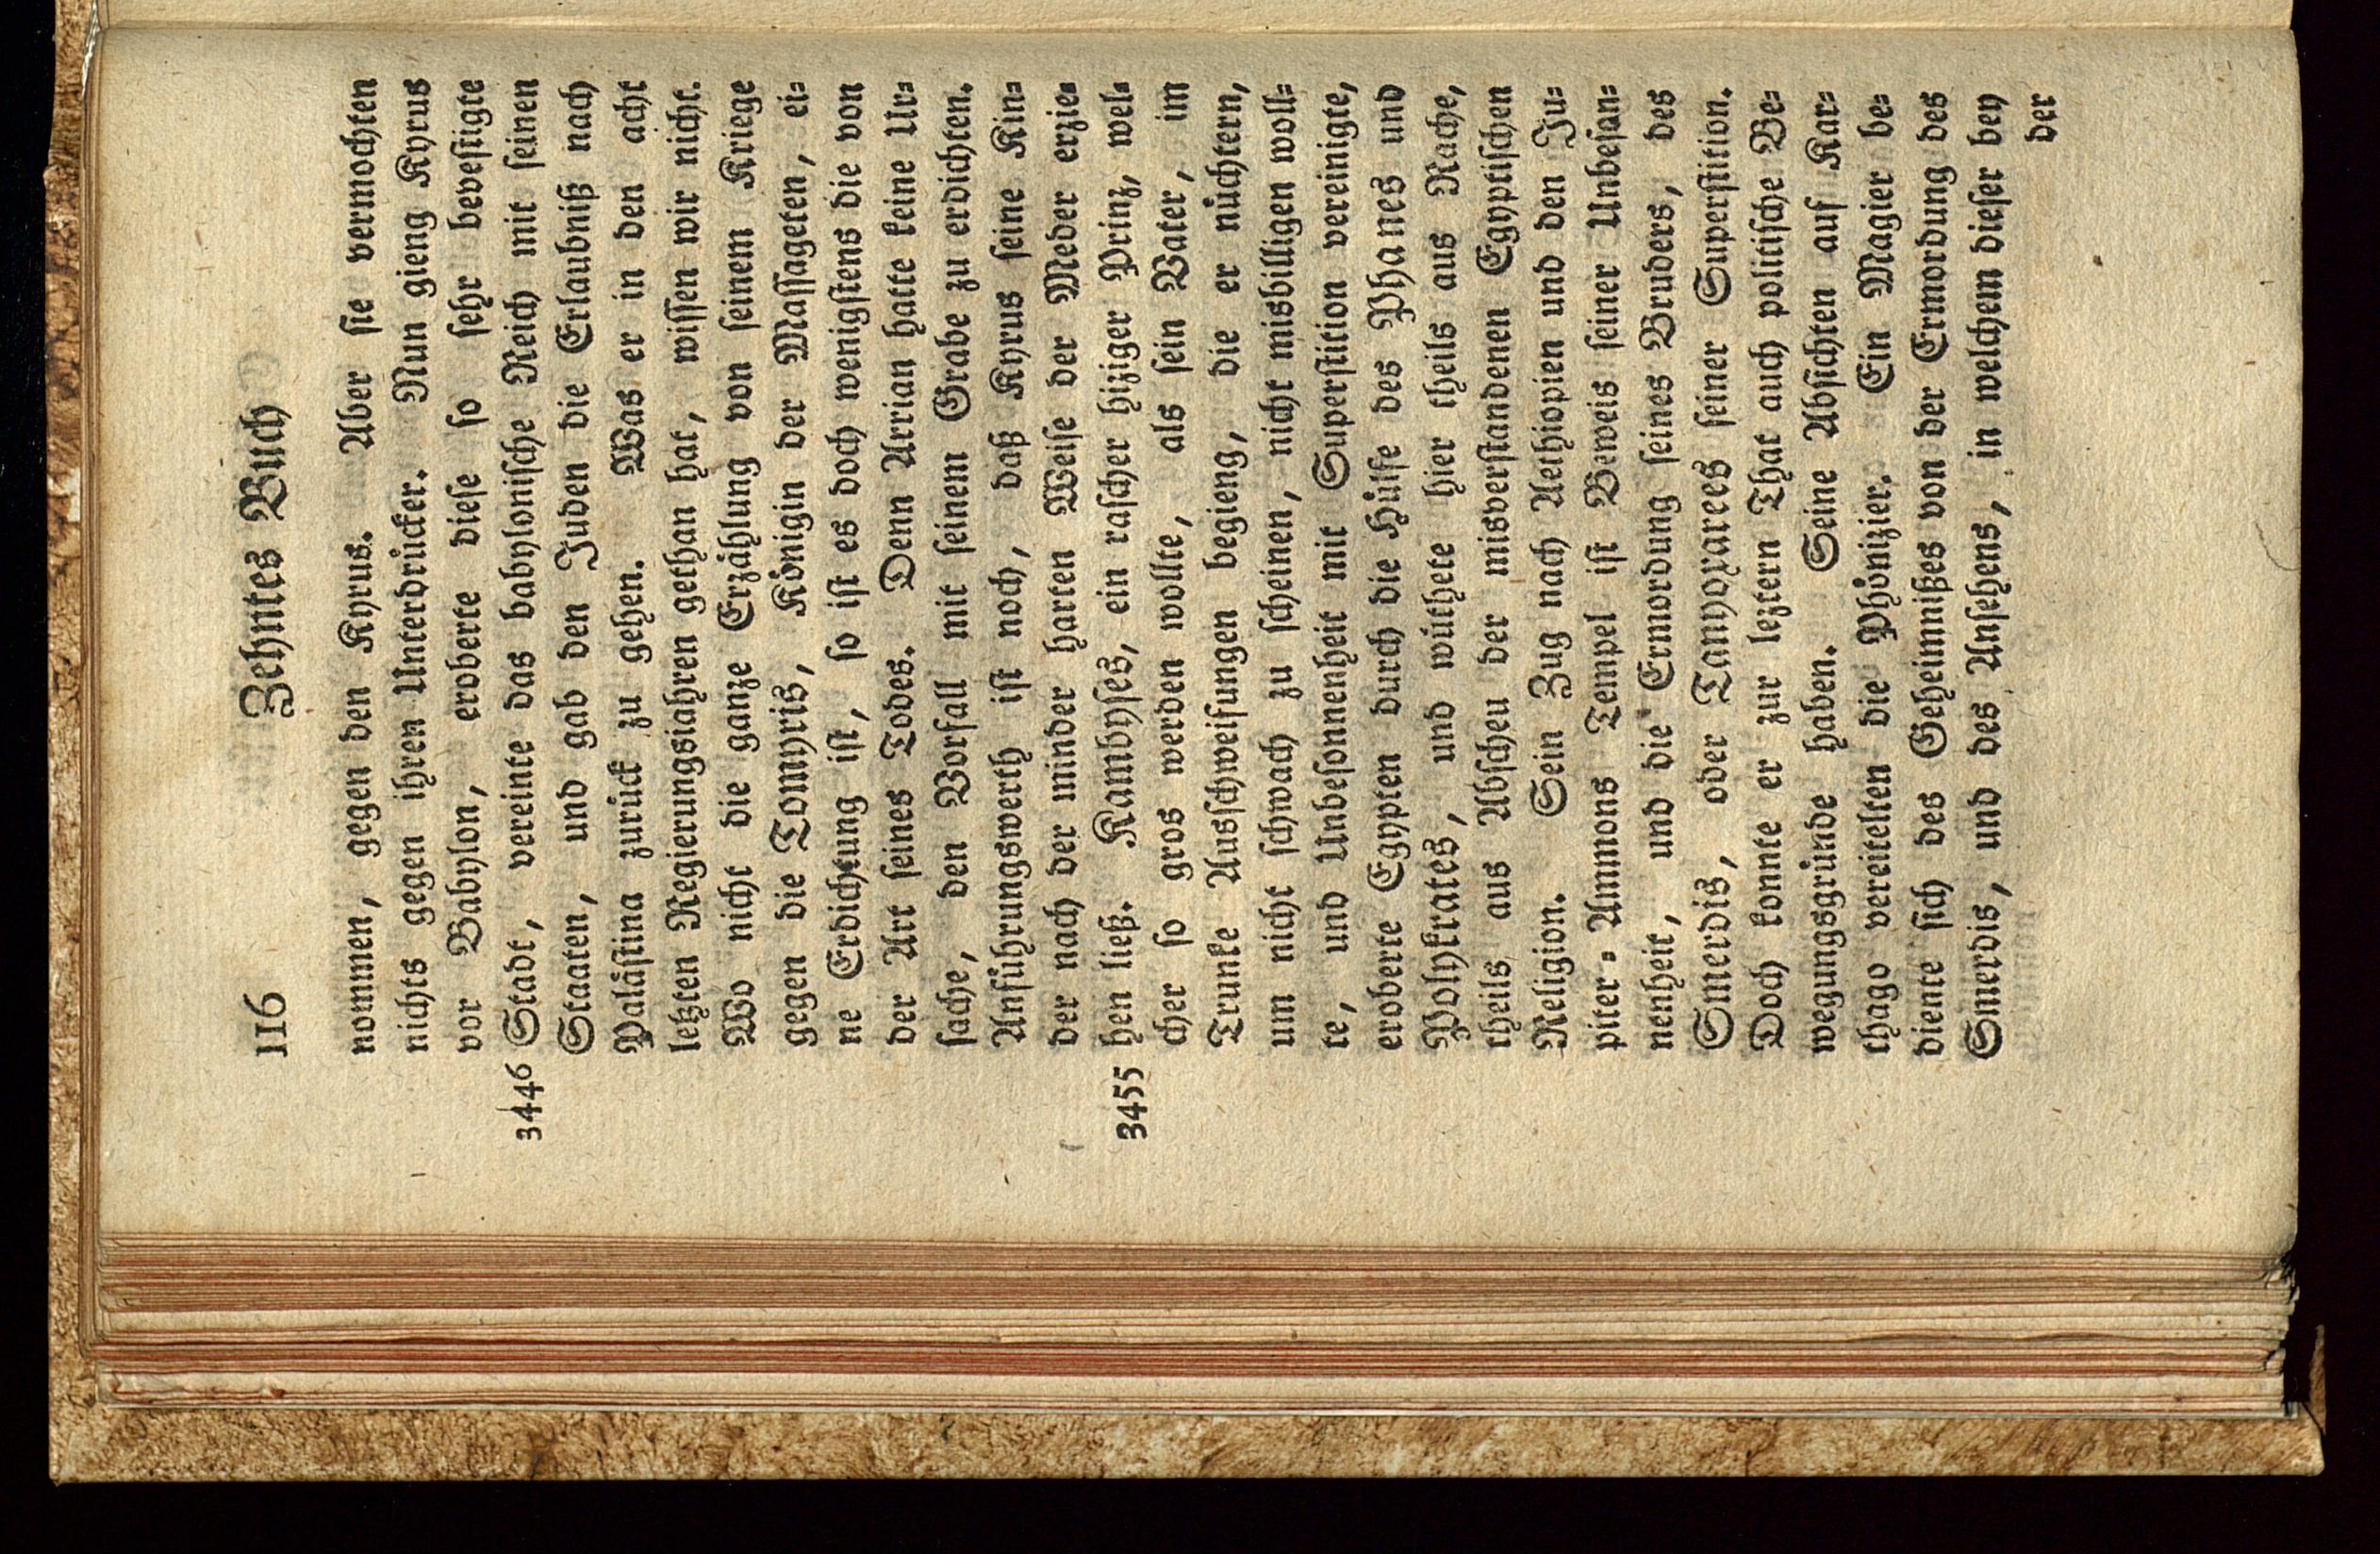 116 Zehntes Buch
nommen, gegen den Kyrus. Aber sie vermochten
nichts gegen ihren Unterdrücker. Nun gieng Kyrus
vor Babylon, eroberte diese so sehr bevestigte
3446 Stadt, vereinte das babylonische Reich mit seinen
Staaten, und gab den Juden die Erlaubniß nach
Palästina zurück zu gehen. Was er in den acht
letzten Regierungsjahren gethan hat, wissen wir nicht.
Wo nicht die ganze Erzählung von seinem Kriege
gegen die Tomyris, Königin der Massageten, ei⸗
ne Erdichtung ist, so ist es doch wenigstens die von
der Art seines Todes. Denn Arrian hatte keine Ur⸗
sache, den Vorfall mit seinem Grabe zu erdichten.
Anführungswerth ist noch, daß Kyrus seine Kin⸗
der nach der minder harten Weise der Meder erzie⸗
3455 hen ließ. Kambyses, ein rascher hiziger Prinz, wel⸗
cher so gros werden wollte, als sein Vater, im
Trunke Ausschweifungen begieng, die er nüchtern,
um nicht schwach zu scheinen, nicht misbilligen woll⸗
te, und Unbesonnenheit mit Superstition vereinigte,
eroberte Egypten durch die Hülfe des Phanes und
Polykrates, und wüthete hier theils aus Rache,
theils aus Abscheu der misverstandenen Egyptischen
Religion. Sein Zug nach Aethiopien und den Ju⸗
piter⸗Ammons Tempel ist Beweis seiner Unbesan⸗
nenheit, und die Ermordung seines Bruders, des
Smerdis, oder Tanyoxarces seiner Superstition.
Doch konnte er zur leztern That auch politische Be⸗
wegungsgründe haben. Seine Absichten auf Kar⸗
thago vereitelten die Phönizier. Ein Magier be⸗
diente sich des Geheimnißes von der Ermordung des
Smerdis, und des Ansehens, in welchem dieser bey
der